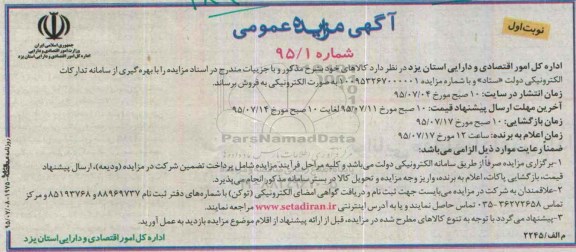 نوبت اول
آگهی مزایده عمومی
شماره ۹۵/۱
جمهوری اسلامی ایران
وزارت امور اقتصادی و دارایی
اداره کل امور اقتصادی و دارایی استان یزد
اداره کل امور اقتصادی و دارایی استان یزد در نظر دارد کالاهای خود بشرح مذکور و با جزییات مندرج در اسناد مزایده را با بهره گیری از سامانه تدارکات
الکترونیکی دولت «ستاد» و با شماره مزایده به صورت الکترونیکی به فروش برساند.
زمان انتشار در سایت: ۱۰ صبح مورخ ۹۵/۰۷/۰۴
آخرین مهلت ارسال پیشنهاد قیمت: ۱۰ صبح مورخ ۹۵/۰۷/۱۱ لغایت ۱۰ صبح مورخ ۹۵/۰۷/۱۴
زمان بازگشایی: ۱۰ صبح مورخ ۹۵/۰۷/۱۷
زمان اعلام به برنده: ساعت ۱۲ مورخ ۹۵/۰۷/۱۷
ضمنا رعایت موارد ذیل الزامی می‌باشد:
۱-برگزاری مزایده صرفاً از طریق سامانه الکترونیکی دولت می‌باشد و کلیه مراحل فرآیند مزایده شامل پرداخت تضمین شرکت در مزایده (ودیعه)، ارسال پیشنهاد
قیمت، بازگشایی پاکات، اعلام به برنده، واریز وجه مزایده و تحویل کالا در بستر سامانه مذکور انجام می‌پذیرد.
۲-علاقمندان به شرکت در مزایده می‌بایست جهت ثبت نام و دریافت گواهی امضای الکترونیکی (توکن) با شماره‌های دفتر ثبت نام ۸۸۹۶۹۷۳۷ و ۸۵۱۹۳۷۶۸ و مرکز
تماس ۳۶۲۷۲۶۵۸-۰۳۵ تماس حاصل نمایند و یا به آدرس اینترنتی www.setadiran.ir مراجعه نمایند.
۳-پیشنهاد می گردد با توجه به تنوع کالاهای مطرح شده در مزایده، قبل از ارائه پیشنهاد از اقلام موضوع مزایده بازدید به عمل آورید.
اداره کل امور اقتصادی و دارایی استان یزد
م الف/۲۲۴۵
ParsNamadData